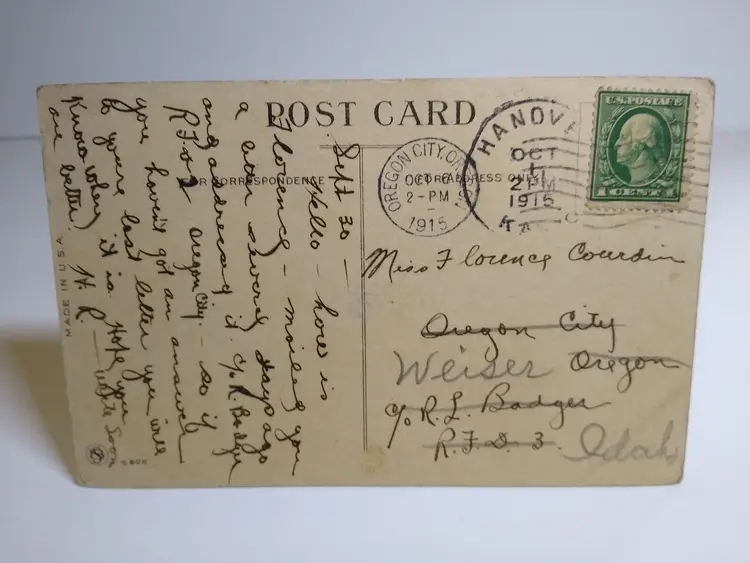 POST CARD
FOR CORRESPONDENCE
FOR ADDRESS ONLY
MADE IN U.S.A.
Sept 30 —
Hello - how is
Florence - mailed you
a letter several days ago
and adressed it c/o R. Badger
R.F.D. 2 Oregon City. - so if
you haven't got an answer
to youre last letter you will
know where it is. Hope you
are better. H. R. — write soon
OREGON CITY, OR
OCT 6
2-PM
1915
HANOV
OCT
1
2 PM
1915
U.S. POSTAGE
1 CENT 1
Miss Florence Courdin
Oregon City
Weiser Oregon
c/o R. L. Badger
R.F.D. 3.
Idah